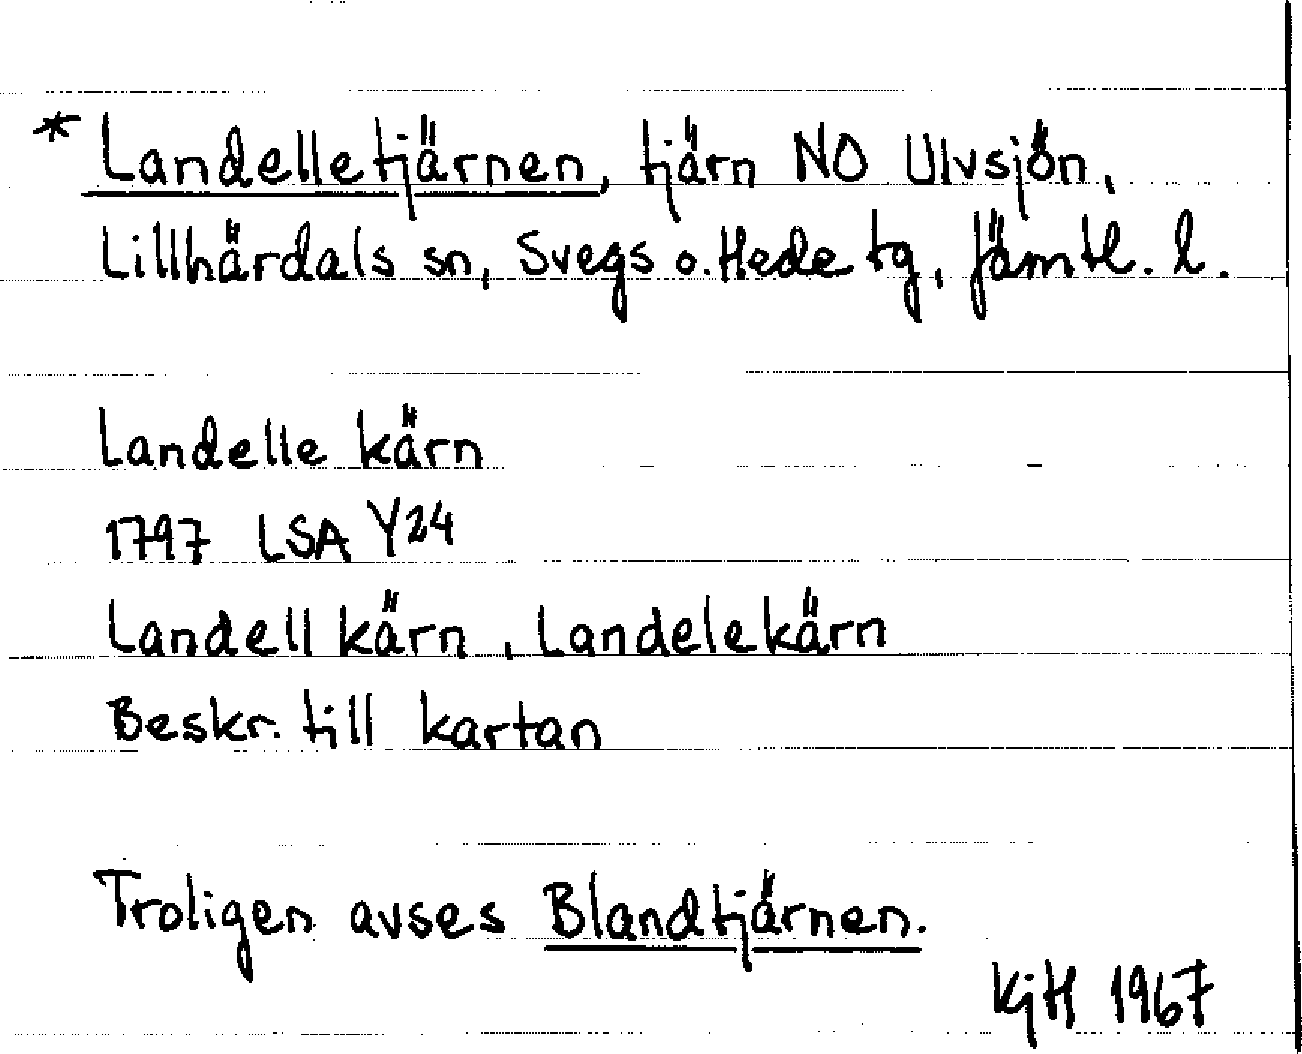 * Landelletjärnen, tjärn NO Ulvsjön,
Lillhärdals sn, Svegs o. Hede tg, Jämtl. l.
Landelle kärn
1797 LSA Y24
Landell kärn, Landelekärn
Beskr. till kartan
Troligen avses Blandtjärnen.
KjH 1967